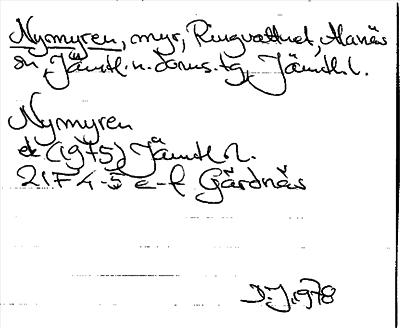 Nymyren, myr, Ringvattnet, Alanäs
sn, Jämtl. n. doms. tg, Jämtl. l.
Nymyren
ek (1975) Jämtl l.
21F 4-5 e-f Gärdnäs
I.J. 1978